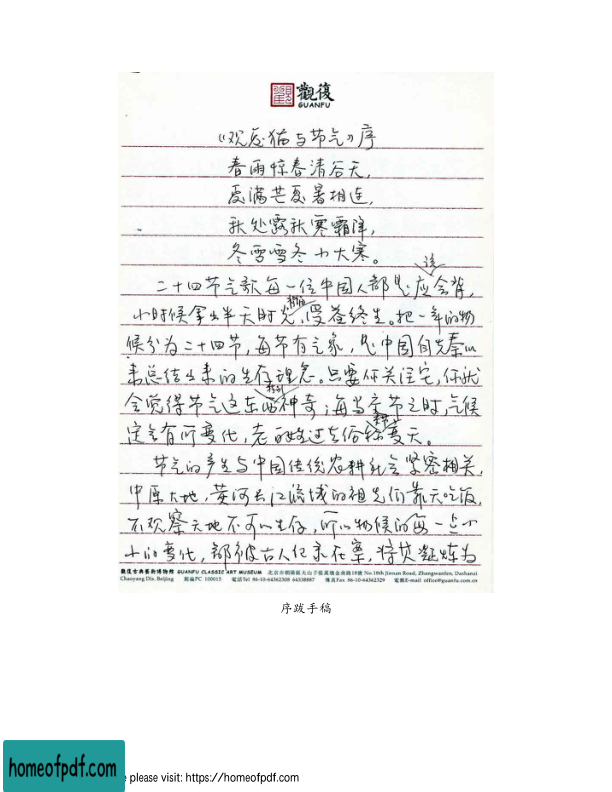 觀復
GUANFU
《观复猫与节气》序
春雨惊春清谷天,
夏满芒夏暑相连,
秋处露秋寒霜降,
冬雪雪冬小大寒。
二十四节气歌每一位中国人都应该会背,
小时候拿出半天时光,受益终生。把一年的物
候分为二十四节,每节有气象,是中国自先秦以
来总结出来的生存理念。只要你关注它,你就
会觉得节气这东西特别神奇;每当交节之时,气候
定会有所变化,老百姓过去俗称变天。
节气的产生与中国传统农耕社会紧密相关,
中原大地,黄河长江流域的祖先们靠天吃饭,
不观察天地不可以生存,所以物候的每一点小
小的变化,都被古人纪录在案,将其凝炼为
觀復古典藝術博物館 GUANFU CLASSIC ART MUSEUM 北京市朝陽區大山子張萬墳金南路18號 No.18th Jinnan Road, Zhangwanfen, Dashanzi
Chaoyang Dis. Beijing 郵編PC 100015 電話Tel 86-10-64362308 64338887 傳真Fax 86-10-64362329 電郵E-mail office@guanfu.com.cn
序跋手稿
homeofpdf.com
e please visit: https://homeofpdf.com